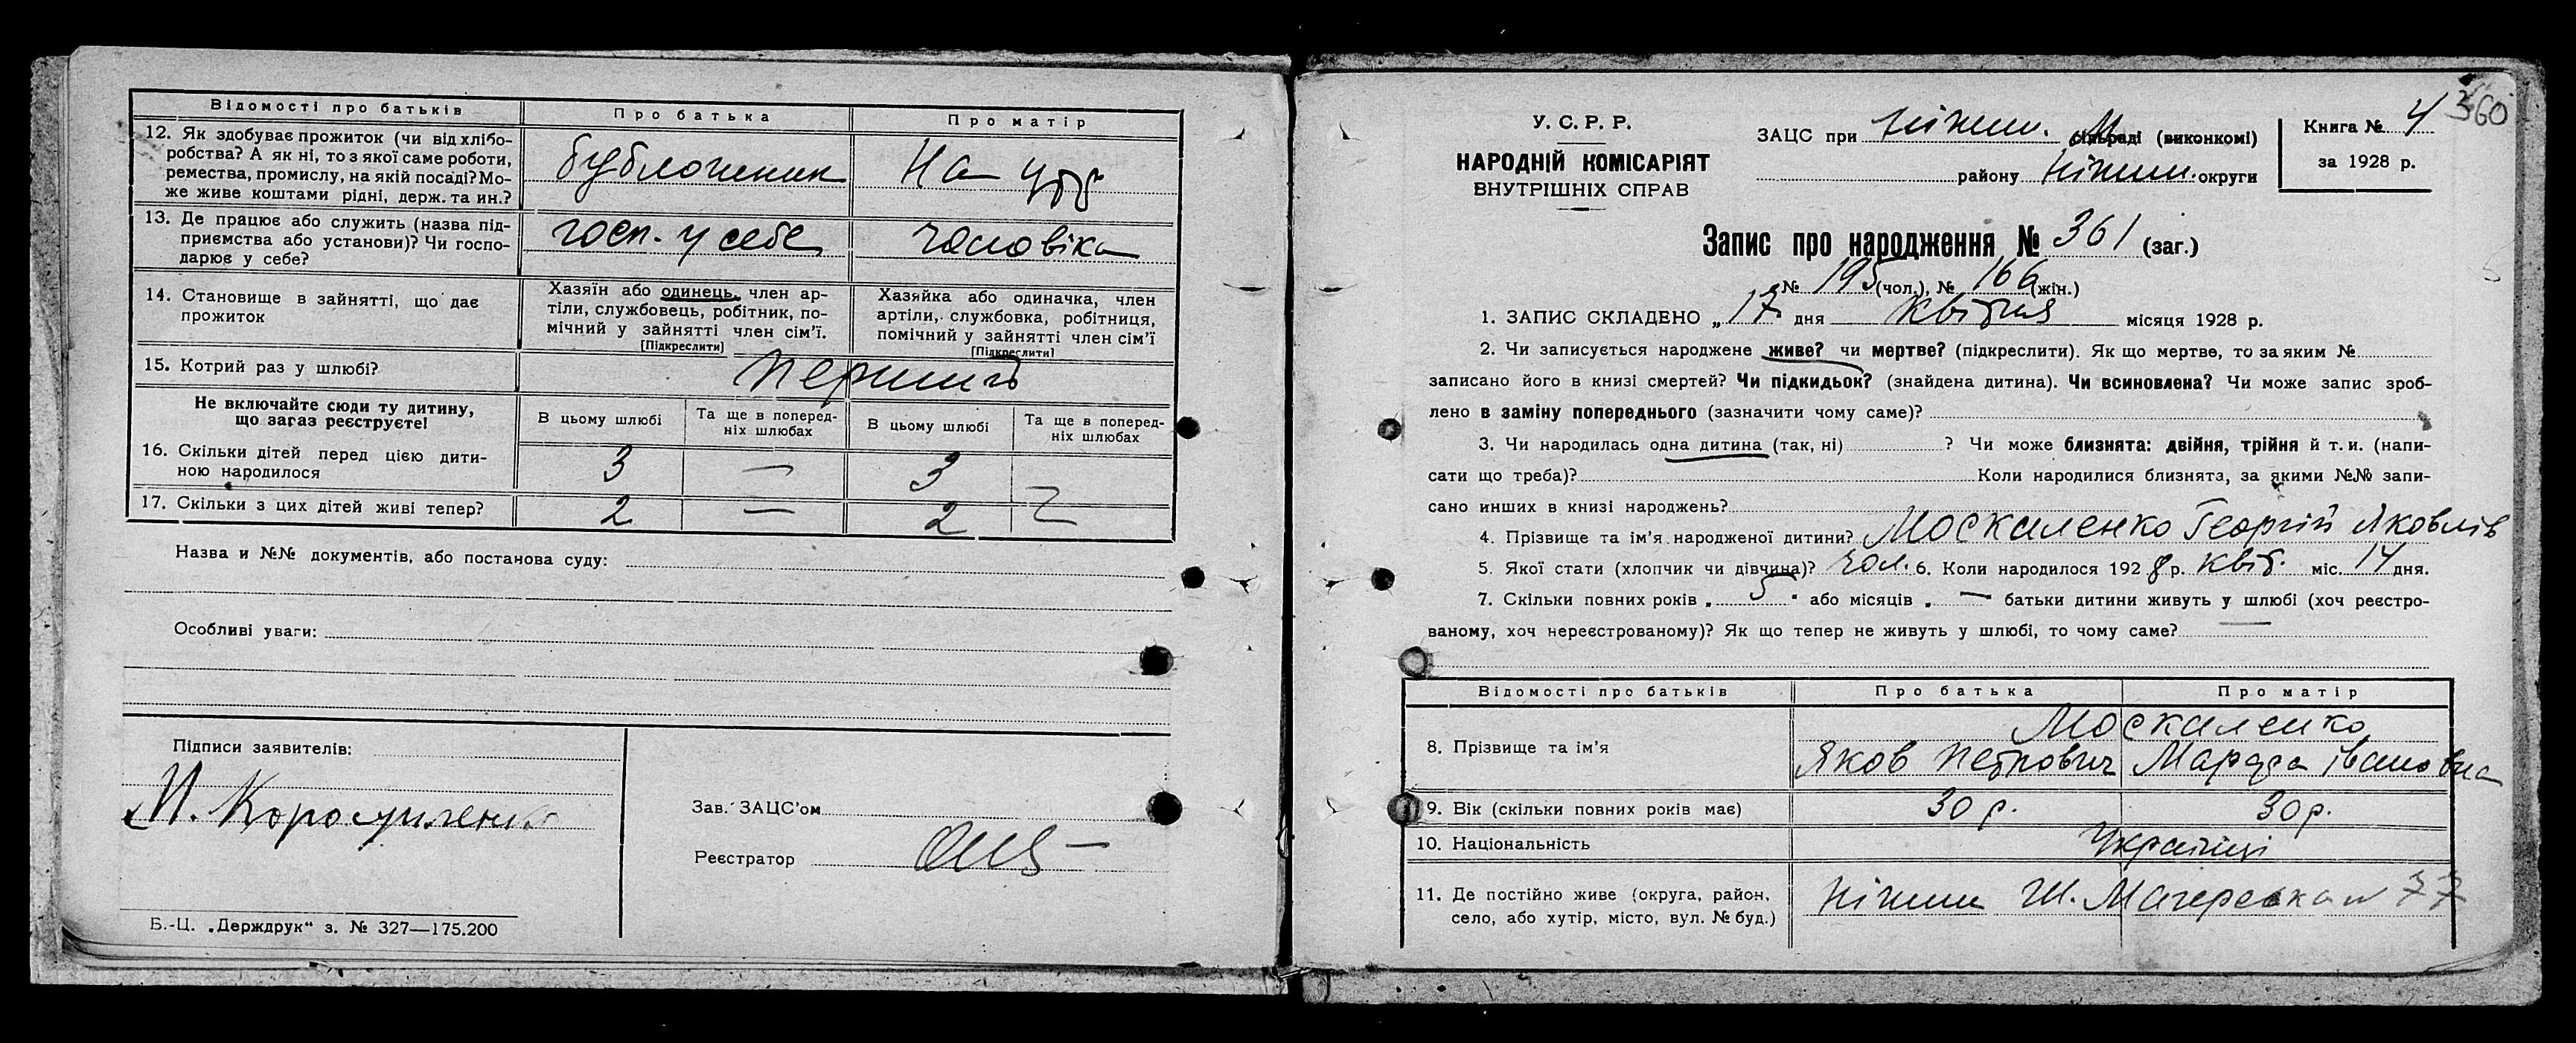 Відомості про батьків Про батька Про матір
12. Як здобуває прожиток (чи від хлібо-
робства? А як ні, то з якої саме роботи,
ремества, промислу, на якій посаді? Мо-
же живе коштами рідні, держ. та ин.?
бубличник На утр
13. Де працює або служить (назва під-
приємства або установи)? Чи госпо-
дарює у себе?
госп. у себе чоловіка
14. Становище в зайнятті, що дає
прожиток
Хазяїн або одинець, член ар-
тіли, службовець, робітник, по-
мічний у зайнятті член сім'ї.
[Підкреслити]
Хазяйка або одиначка, член
артіли, службовка, робітниця,
помічний у зайнятті член сім'ї
[Підкреслити]
15. Котрий раз у шлюбі? перший
Не включайте сюди ту дитину,
що зараз реєструєте!
В цьому шлюбі Та ще в поперед-
ніх шлюбах В цьому шлюбі Та ще в поперед-
ніх шлюбах
16. Скільки дітей перед цією дити-
ною народилося 3 — 3
17. Скільки з цих дітей живі тепер? 2 — 2
Назва и №№ документів, або постанова суду:
Особливі уваги:
Підписи заявителів:
Зав. ЗАЦС'ом
Реєстратор
Б.-Ц. „Держдрук" з. № 327—175.200
360
У. С. Р. Р.
НАРОДНІЙ КОМІСАРІЯТ
ВНУТРІШНІХ СПРАВ
ЗАЦС при Ніжин. М сільраді (виконкомі)
району Ніжин. округи
Книга № 4
за 1928 р.
Запис про народження № 361 (заг.)
№ 195 (чол.), № 166 (жін.)
1. ЗАПИС СКЛАДЕНО „17" дня квітня місяця 1928 р.
2. Чи записується народжене живе? чи мертве? (підкреслити). Як що мертве, то за яким №
записано його в книзі смертей? Чи підкидьок? (знайдена дитина). Чи всиновлена? Чи може запис зроб-
лено в заміну попереднього (зазначити чому саме)?
3. Чи народилась одна дитина (так, ні) ? Чи може близнята: двійня, трійня й т. и. (напи-
сати що треба)? Коли народилися близнята, за якими №№ запи-
сано инших в книзі народжень?
4. Прізвище та ім'я народженої дитини? Москаленко Георгій Яковлів
5. Якої стати (хлопчик чи дівчина)? чол. 6. Коли народилося 1928 р. квіт. міс. 14 дня.
7. Скільки повних років „5" або місяців „—" батьки дитини живуть у шлюбі (хоч реєстро-
ваному, хоч нереєстрованому)? Як що тепер не живуть у шлюбі, то чому саме?
Відомості про батьків Про батька Про матір
Москаленко
8. Прізвище та ім'я Яков Петрович Марфа Івановна
9. Вік (скільки повних років має) 30 р. 30 р.
10. Національність Українці
11. Де постійно живе (округа, район,
село, або хутір, місто, вул. № буд.)
Ніжин Ш. Магерська № 77